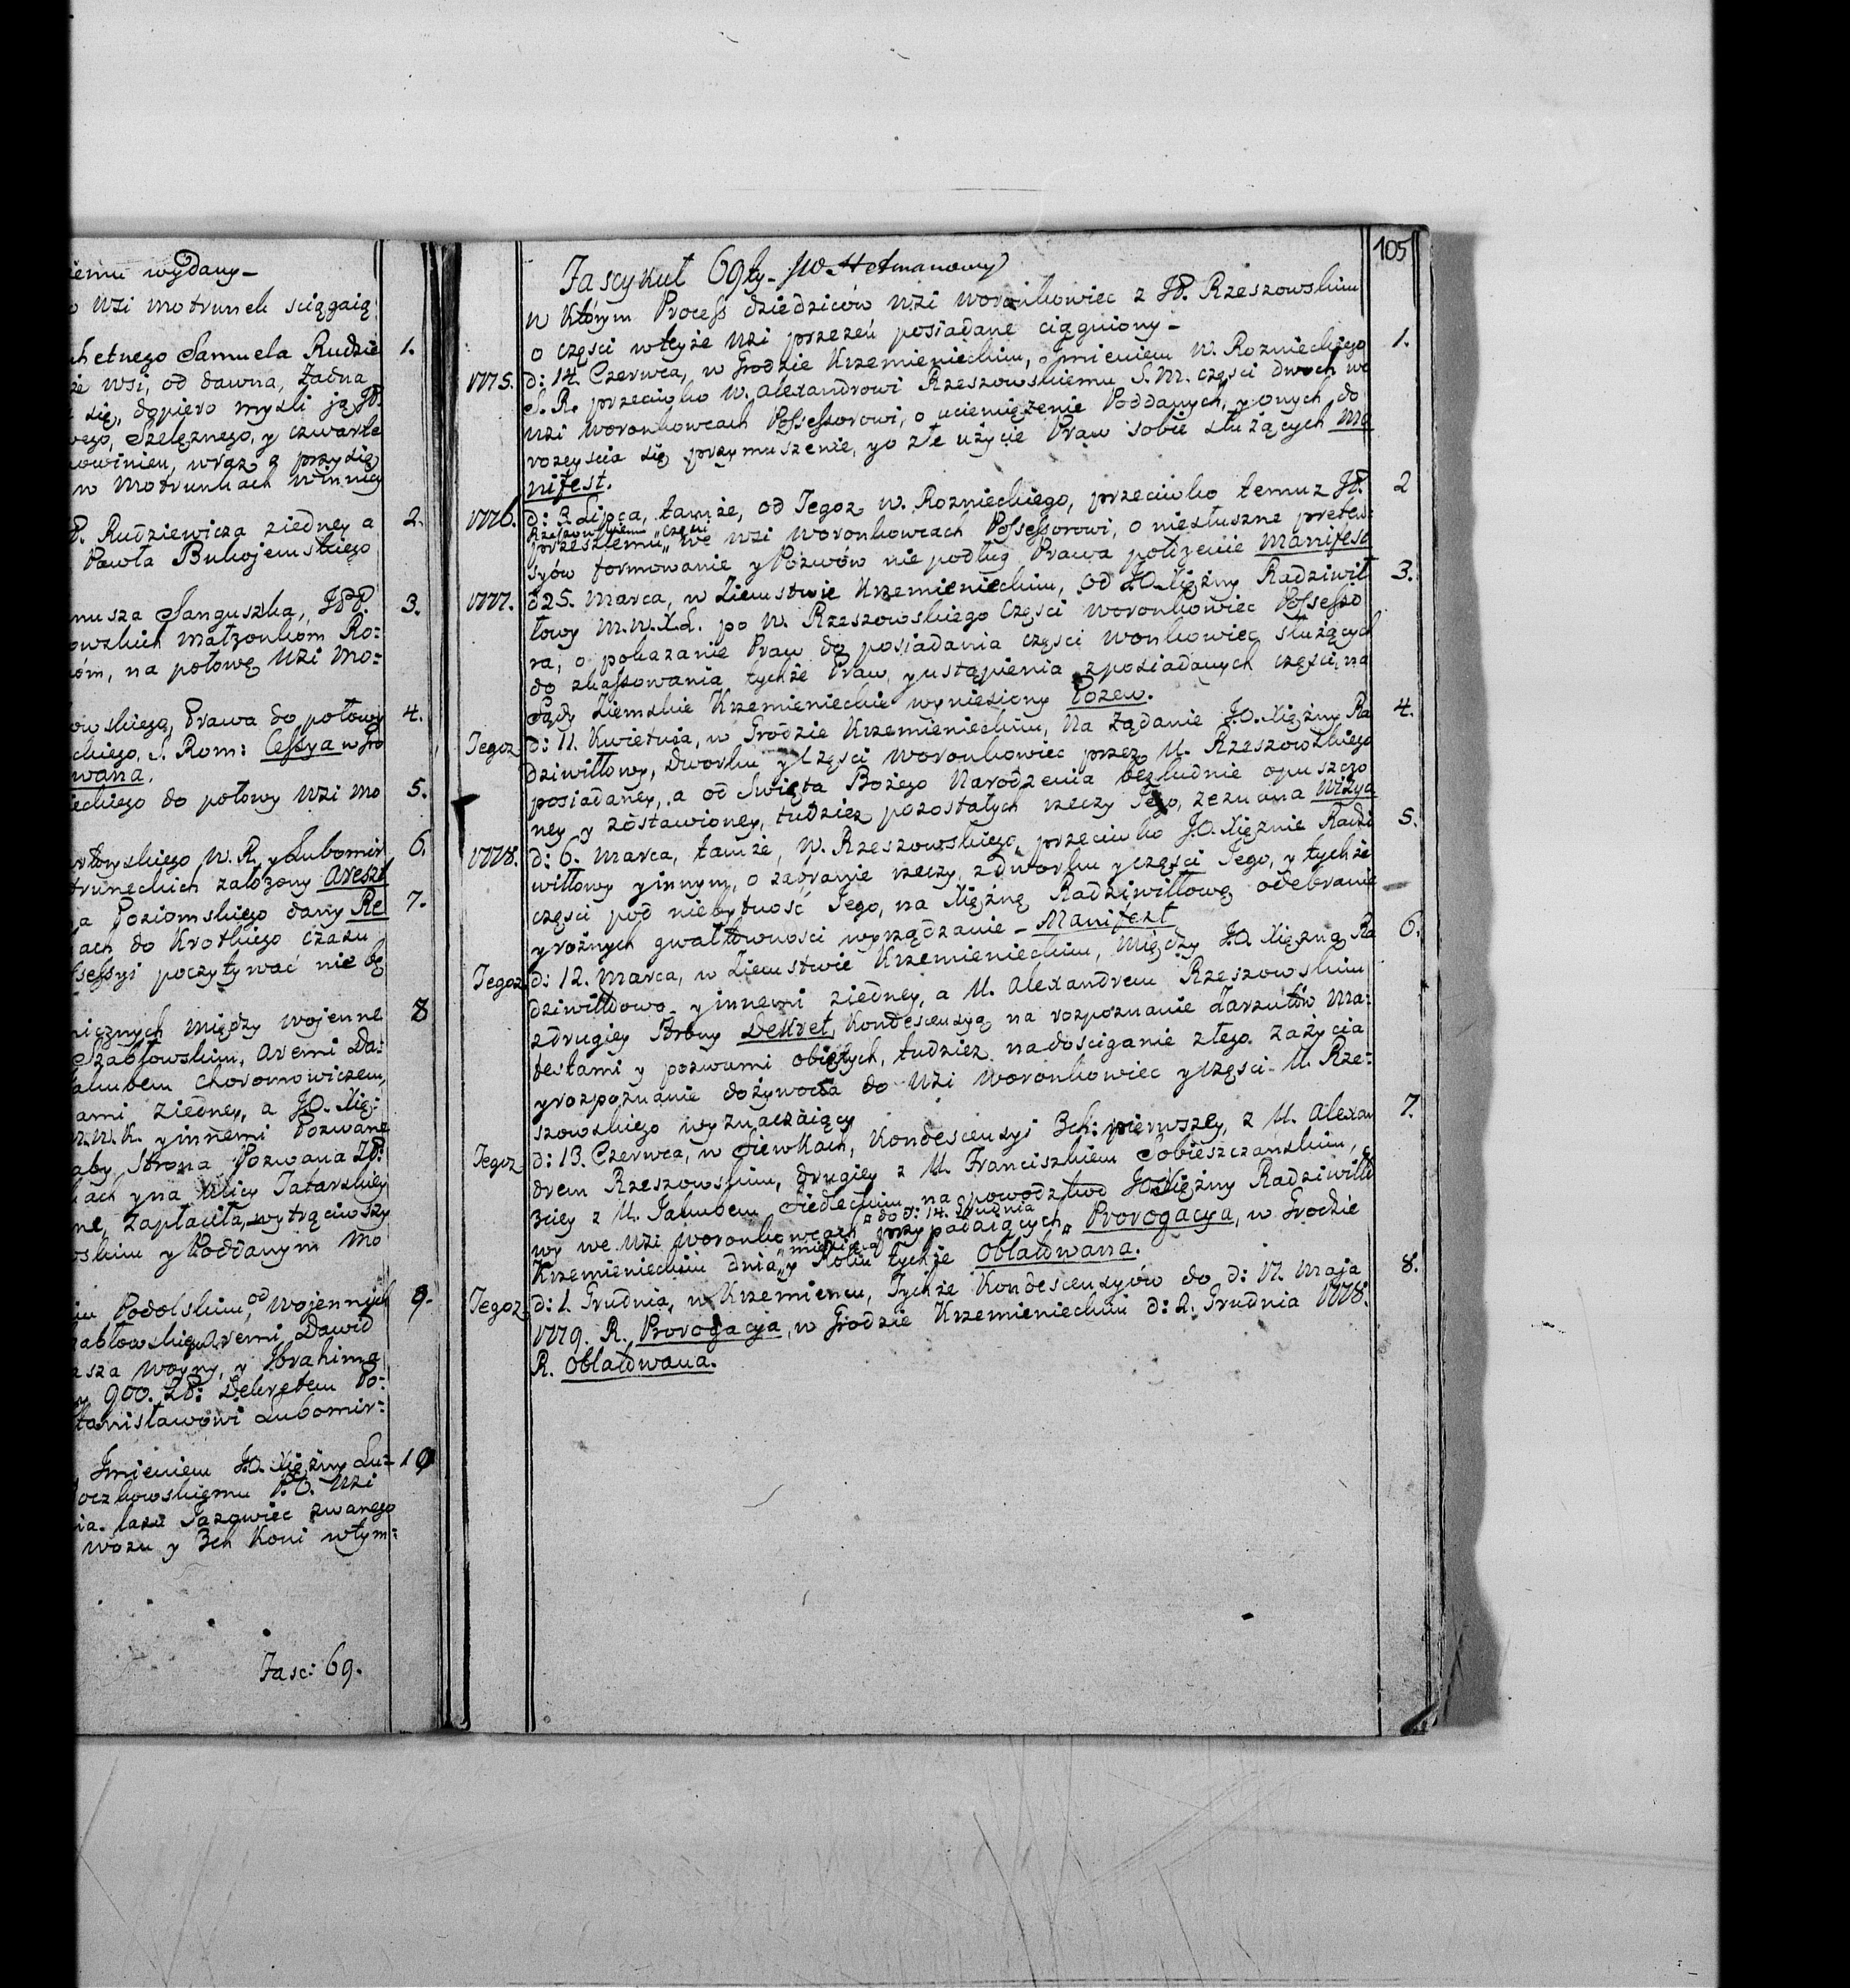 iemu wydany_
o wsi motrunek sciągaią
chetnego Samuela Rudzie 1.
że wsi, od dawna, żadna
się, dopiero mysli ją JP.
wego, Szelężnego, y czwarte
nowinien, wraz a przysię
w Motrunkach winney
P. Rudziewicza ziedney a 2.
Pawła Bukojemskiego
nusza Sanguszka, JPP. 3.
owskich małżonkom Ro:
óm, na połowę wsi Mo:
owskiego, Prawa do połowy 4.
ckiego, S. Rom: Cessya w Gro
wana.
ieckiego do połowy wsi Mo 5.
artoryskiego W. R. y Lubomir 6.
truneckich założony Areszt
a Poziomskiego dany Re 7.
ach do Krotkiego czasu
ssessyi poczytywać nie bę
nicznych między wojenne 8
Szabłowskim, Aremi Da:
akubem Choromowiczem,
ami ziedney, a J.O. Xię:
W.W.K. y innemi Pozwane
aby Strona Pozwana Zł:
kach y na Ulicy Tatarskiey
ne, zapłaciła, wytrąciwszy
oskim y Poddanym Mo
im Podolskim, od Wojennych 9.
zabłowskiego Aremi Dawid
asza Woyny, y Ibrahima
y 900. Zł: Dekretem Po:
Stanisławowi Lubomir:
Jmieniem J.O. Xiężny Lu= 10
oczkowskiemu P.O. wsi
ia lasu Jazowiec zwanego
wozu y 3ch Koni wtym:
Fasc: 69.
105
Fascykuł 69ty_ JW. Hetmanowy
w którym Process dziedziców wsi Woronkowiec z JP. Rzeszowskim
o części wteyże wsi przezeń posiadane ciągniony_
1775. d: 14. Czerwca, w Grodzie Krzemienieckim, Jmieniem W. Roznieckiego 1.
S. R. przeciwko W. Alexandrowi Rzeszowskiemu S.M. części dwoch we
wsi Woronkowcach Possessorowi, o uciemiężenie Poddanych, y onych do
rozeyscia się przymuszenie, y o złe użycie Praw sobie służących Ma
nifest.
1776. d: 3. Lipca, tamże, od Tegoz W. Roznieckiego, przeciwko temuz JP. 2
Rzeszowskiemu „części
przeszłemu „we wsi Woronkowcach Possessorowi, o niesłuszne preten:
syów formowanie y Pozwów nie podług Prawa położenie Manifest
1777. d 25. Marca, w Ziemstwie Krzemienieckim, od J.O. Xiężny Radziwił 3.
łowy M.W.X.L. po W. Rzeszowskiego Części Woronkowiec Possesso
ra, o pokazanie Praw do posiadania części Wonkowiec służących
do skassowania tychże Praw, y ustąpienia z posiadanych części, na
Sądy Ziemskie Krzemienieckie wyniesiony Pozew.
Tegoz d: 11. Kwietnia, w Grodzie Krzemienieckim, Na Żądanie J.O. Xiężny Ra 4.
dziwiłłowy, Dworku y Części Woronkowiec przez U. Rzeszowskiego
posiadaney, a od Swięta Bożego Narodzenia bezludnie opuszczo
ney y zostawioney, tudziez pozostałych rzeczy Jego, zeznana Wizya
1778. d: 6. Marca, tamże, W. Rzeszowskiego, przeciwko J.O. Xiężnie Radzi 5.
wiłłowy y innym, o zabranie rzeczy, z dworku y części Jego, y tychże
części pod niebytność Jego, na Xiężnę Radziwiłłowę odebranie
y rożnych gwałtowności wyrządzanie_ Manifest
Tegoz d: 12. Marca, w Ziemstwie Krzemienieckim, między J.O. Xiężną Ra 6.
dziwiłłowo y innemi ziedney, a U. Alexandrem Rzeszowskim
z drugiey Strony Dekret, Kondescensyą na rozpoznanie Zarzutów Ma:
festami y pozwami obiętych, tudziez na dościganie złego Zażycia
y rozpoznanie dożywocia do wsi Woronkowiec y części U. Rze:
szowskiego wyznaczaiący
Tegoz d: 13. Czerwca, w Siewkach, Kondescensyi 3ch: pierwszey, z U. Alexan 7.
drem Rzeszowskim, drugiey z U. Franciszkiem Sobieszczańskim,
3ciey z U. Jakubem Siedleckim na powodztwo J.O. Xiężny Radziwiłło
wy we wsi Woronkowcach przypadaiących „do d: 14. Grudnia„ Prorogacya, w Grodzie
Krzemienieckim dnia „miesiąca„ y Roku tychże Oblatowana.
Tegoz d: 1. Grudnia, w Krzemieńcu, Tychże Kondescensyów do d: 17. Maja 8.
1779. R. Prorogacya, w Grodzie Krzemienieckim d: 2. Grudnia 1778.
R. Oblatowana.